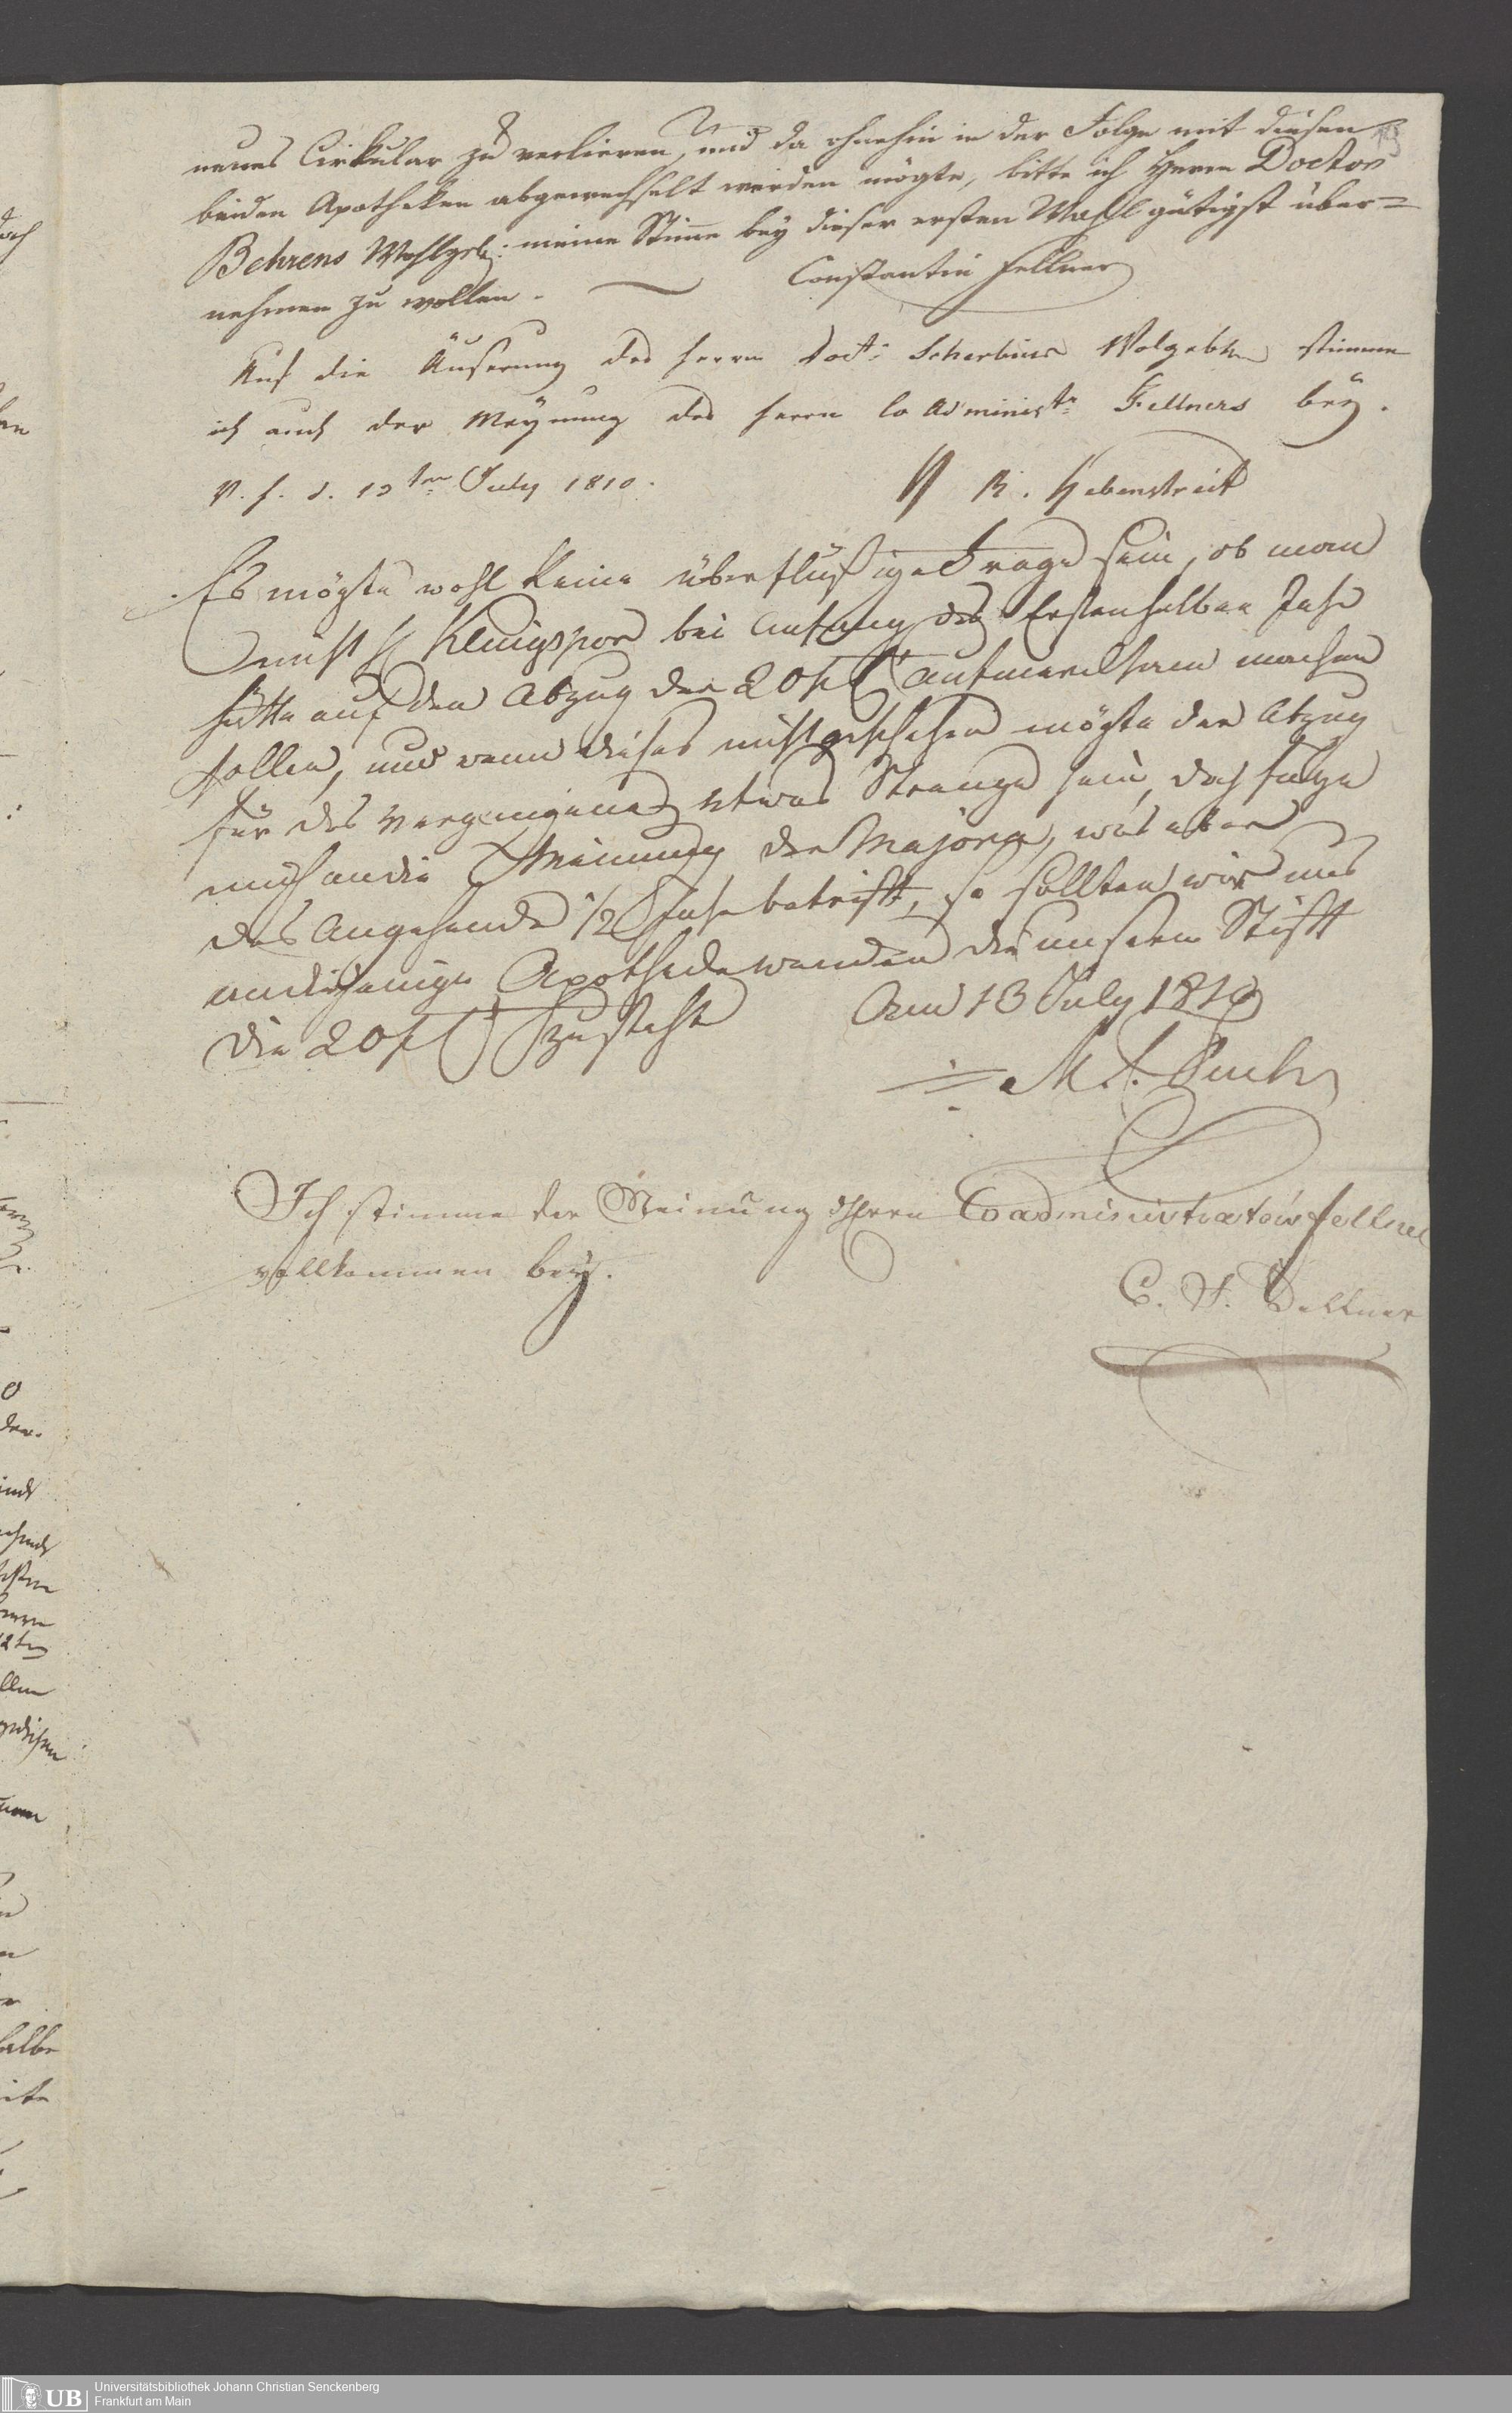 neues Cirkular zu verlieren, und da ohnehin in der Folge mit diesen
beiden Apotheken abgewechselt werden mögte, bitte ich Herrn Doctor
Behrens Wohlgeb: meine Stimme bey dieser ersten Wahl gütigst über=
nehmen zu wollen. Constantin Fellner
Auf die Äuserung des Herrn Doct: Scherbius Wolgebhrn stimme
ich auch der Meynung des Herrn Co Administr Fellners bey.
V. f. d. 12ten July 1810. R. Hebenstreit
Es mögte wohl keine überflüßige Frage sein, ob man
nicht H Klingspor bei Anfang des Erstenhalben Jahr
hätte auf den Abzug der 20 pCt aufmerksam machen
sollen, und wenn dieses nicht geschehen mögte der Abzug
für das vergangene etwas Strenge sein, doch füge
mich an die Meinung der Majora, was aber
das Angehende 1/2 Jahr betrifft, so sollten wir uns
an diejenige Apotheke wenden die unserm Stifft
die 20 pCt zusteht Am 13 July 1810
Ich stimme der Meinung Herrn Coadministrators Fellner
vollkommen bey.
UB
Universitätsbibliothek Johann Christian Senckenberg
Frankfurt am Main